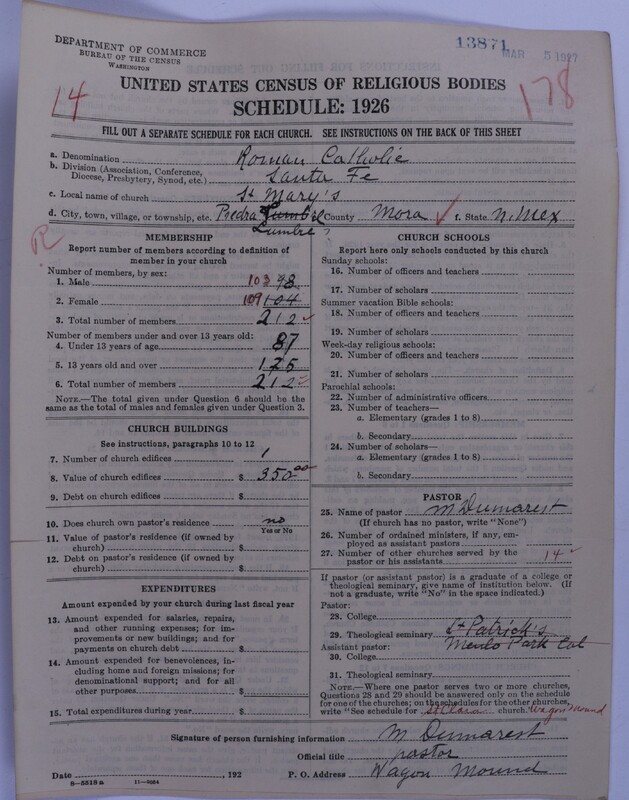 DEPARTMENT OF COMMERCE
BUREAU OF THE CENSUS
WASHINGTON
13871
MAR 5 1927
UNITED STATES CENSUS OF RELIGIOUS BODIES
SCHEDULE: 1926
14
178
FILL OUT A SEPARATE SCHEDULE FOR EACH CHURCH. SEE INSTRUCTIONS ON THE BACK OF THIS SHEET
a. Denomination Roman Catholic
b. Division (Association, Conference, Diocese, Presbytery, Synod, etc.) Santa Fe
c. Local name of church St Mary's
d. City, town, village, or township, etc. Piedra Lumbre County Mora f. State N. Mex
R
MEMBERSHIP
Report number of members according to definition of
member in your church
Number of members, by sex:
1. Male 103 98
2. Female 109 104
3. Total number of members 212
Number of members under and over 13 years old:
4. Under 13 years of age 87
5. 13 years old and over 125
6. Total number of members 212
NOTE.—The total given under Question 6 should be
same as the total of males and females given under Question 3.
CHURCH BUILDINGS
See instructions, paragraphs 10 to 12
7. Number of church edifices 1
8. Value of church edifices $ 350.00
9. Debt on church edifices $
10. Does church own pastor's residence no
Yes or No
11. Value of pastor's residence (if owned by
church) $
12. Debt on pastor's residence (if owned by
church) $
EXPENDITURES
Amount expended by your church during last fiscal year
13. Amount expended for salaries, repairs,
and other running expenses; for im-
provements or new buildings; and for
payments on church debt $
14. Amount expended for benevolences, in-
cluding home and foreign missions; for
denominational support; and for all
other purposes $
15. Total expenditures during year $
CHURCH SCHOOLS
Report here only schools conducted by this church
Sunday schools:
16. Number of officers and teachers
17. Number of scholars
Summer vacation Bible schools:
18. Number of officers and teachers
19. Number of scholars
Week-day religious schools:
20. Number of officers and teachers
21. Number of scholars
Parochial schools:
22. Number of administrative officers
23. Number of teachers—
a. Elementary (grades 1 to 8)
b. Secondary
24. Number of scholars—
a. Elementary (grades 1 to 8)
b. Secondary
PASTOR
25. Name of pastor M Dumarest
(If church has no pastor, write "None")
26. Number of ordained ministers, if any, em-
ployed as assistant pastors
27. Number of other churches served by the
pastor or his assistants 14
If pastor (or assistant pastor) is a graduate of a college or
theological seminary, give name of institution below. (If
not a graduate, write "No" in the space indicated.)
Pastor:
28. College
29. Theological seminary St Patrick's
Assistant pastor: Menlo Park Cal
30. College
31. Theological seminary
NOTE.—Where one pastor serves two or more churches,
Questions 28 and 29 should be answered only on the schedule
for one of the churches; on the schedules for the other churches,
write "See schedule for St Clara church. Wagon Mound
Signature of person furnishing information M Dumarest
Official title pastor
Date , 192 P. O. Address Wagon Mound
8-5518 a 11-9064